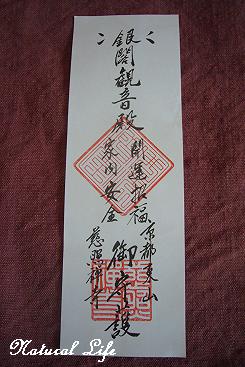 銀閣観音殿
開運招福
家内安全
京都東山
慈照禅寺
御守護
Natural Life